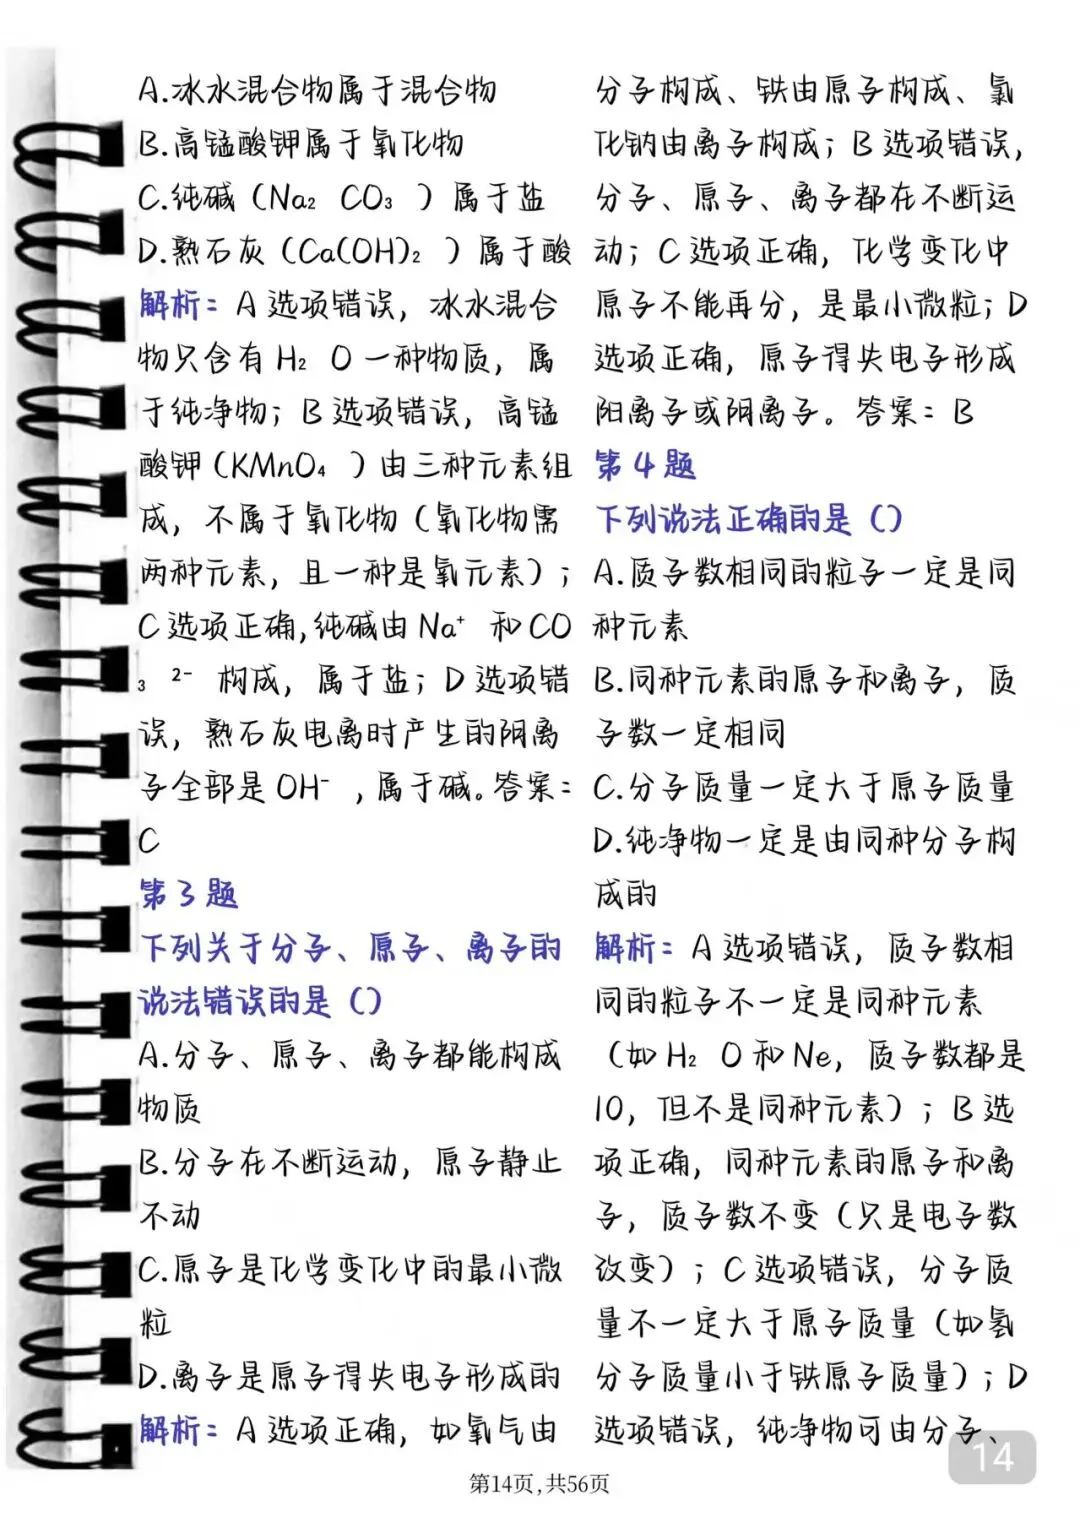 A.冰水混合物属于混合物
B.高锰酸钾属于氧化物
C.纯碱（Na₂ CO₃ ）属于盐
D.熟石灰（Ca(OH)₂ ）属于酸
解析：A 选项错误，冰水混合
物只含有 H₂ O 一种物质，属
于纯净物；B 选项错误，高锰
酸钾（KMnO₄ ）由三种元素组
成，不属于氧化物（氧化物需
两种元素，且一种是氧元素）；
C 选项正确,纯碱由 Na⁺ 和 CO
₃ ²⁻ 构成，属于盐；D 选项错
误，熟石灰电离时产生的阴离
子全部是 OH⁻ ，属于碱。答案：
C
第 3 题
下列关于分子、原子、离子的
说法错误的是（）
A.分子、原子、离子都能构成
物质
B.分子在不断运动，原子静止
不动
C.原子是化学变化中的最小微
粒
D.离子是原子得失电子形成的
解析：A 选项正确，如氧气由
分子构成、铁由原子构成、氯
化钠由离子构成；B 选项错误，
分子、原子、离子都在不断运
动；C 选项正确，化学变化中
原子不能再分，是最小微粒；D
选项正确，原子得失电子形成
阳离子或阴离子。答案：B
第 4 题
下列说法正确的是（）
A.质子数相同的粒子一定是同
种元素
B.同种元素的原子和离子，质
子数一定相同
C.分子质量一定大于原子质量
D.纯净物一定是由同种分子构
成的
解析：A 选项错误，质子数相
同的粒子不一定是同种元素
（如 H₂ O 和 Ne，质子数都是
10，但不是同种元素）；B 选
项正确，同种元素的原子和离
子，质子数不变（只是电子数
改变）；C 选项错误，分子质
量不一定大于原子质量（如氢
分子质量小于铁原子质量）；D
选项错误，纯净物可由分子、
14
第14页,共56页